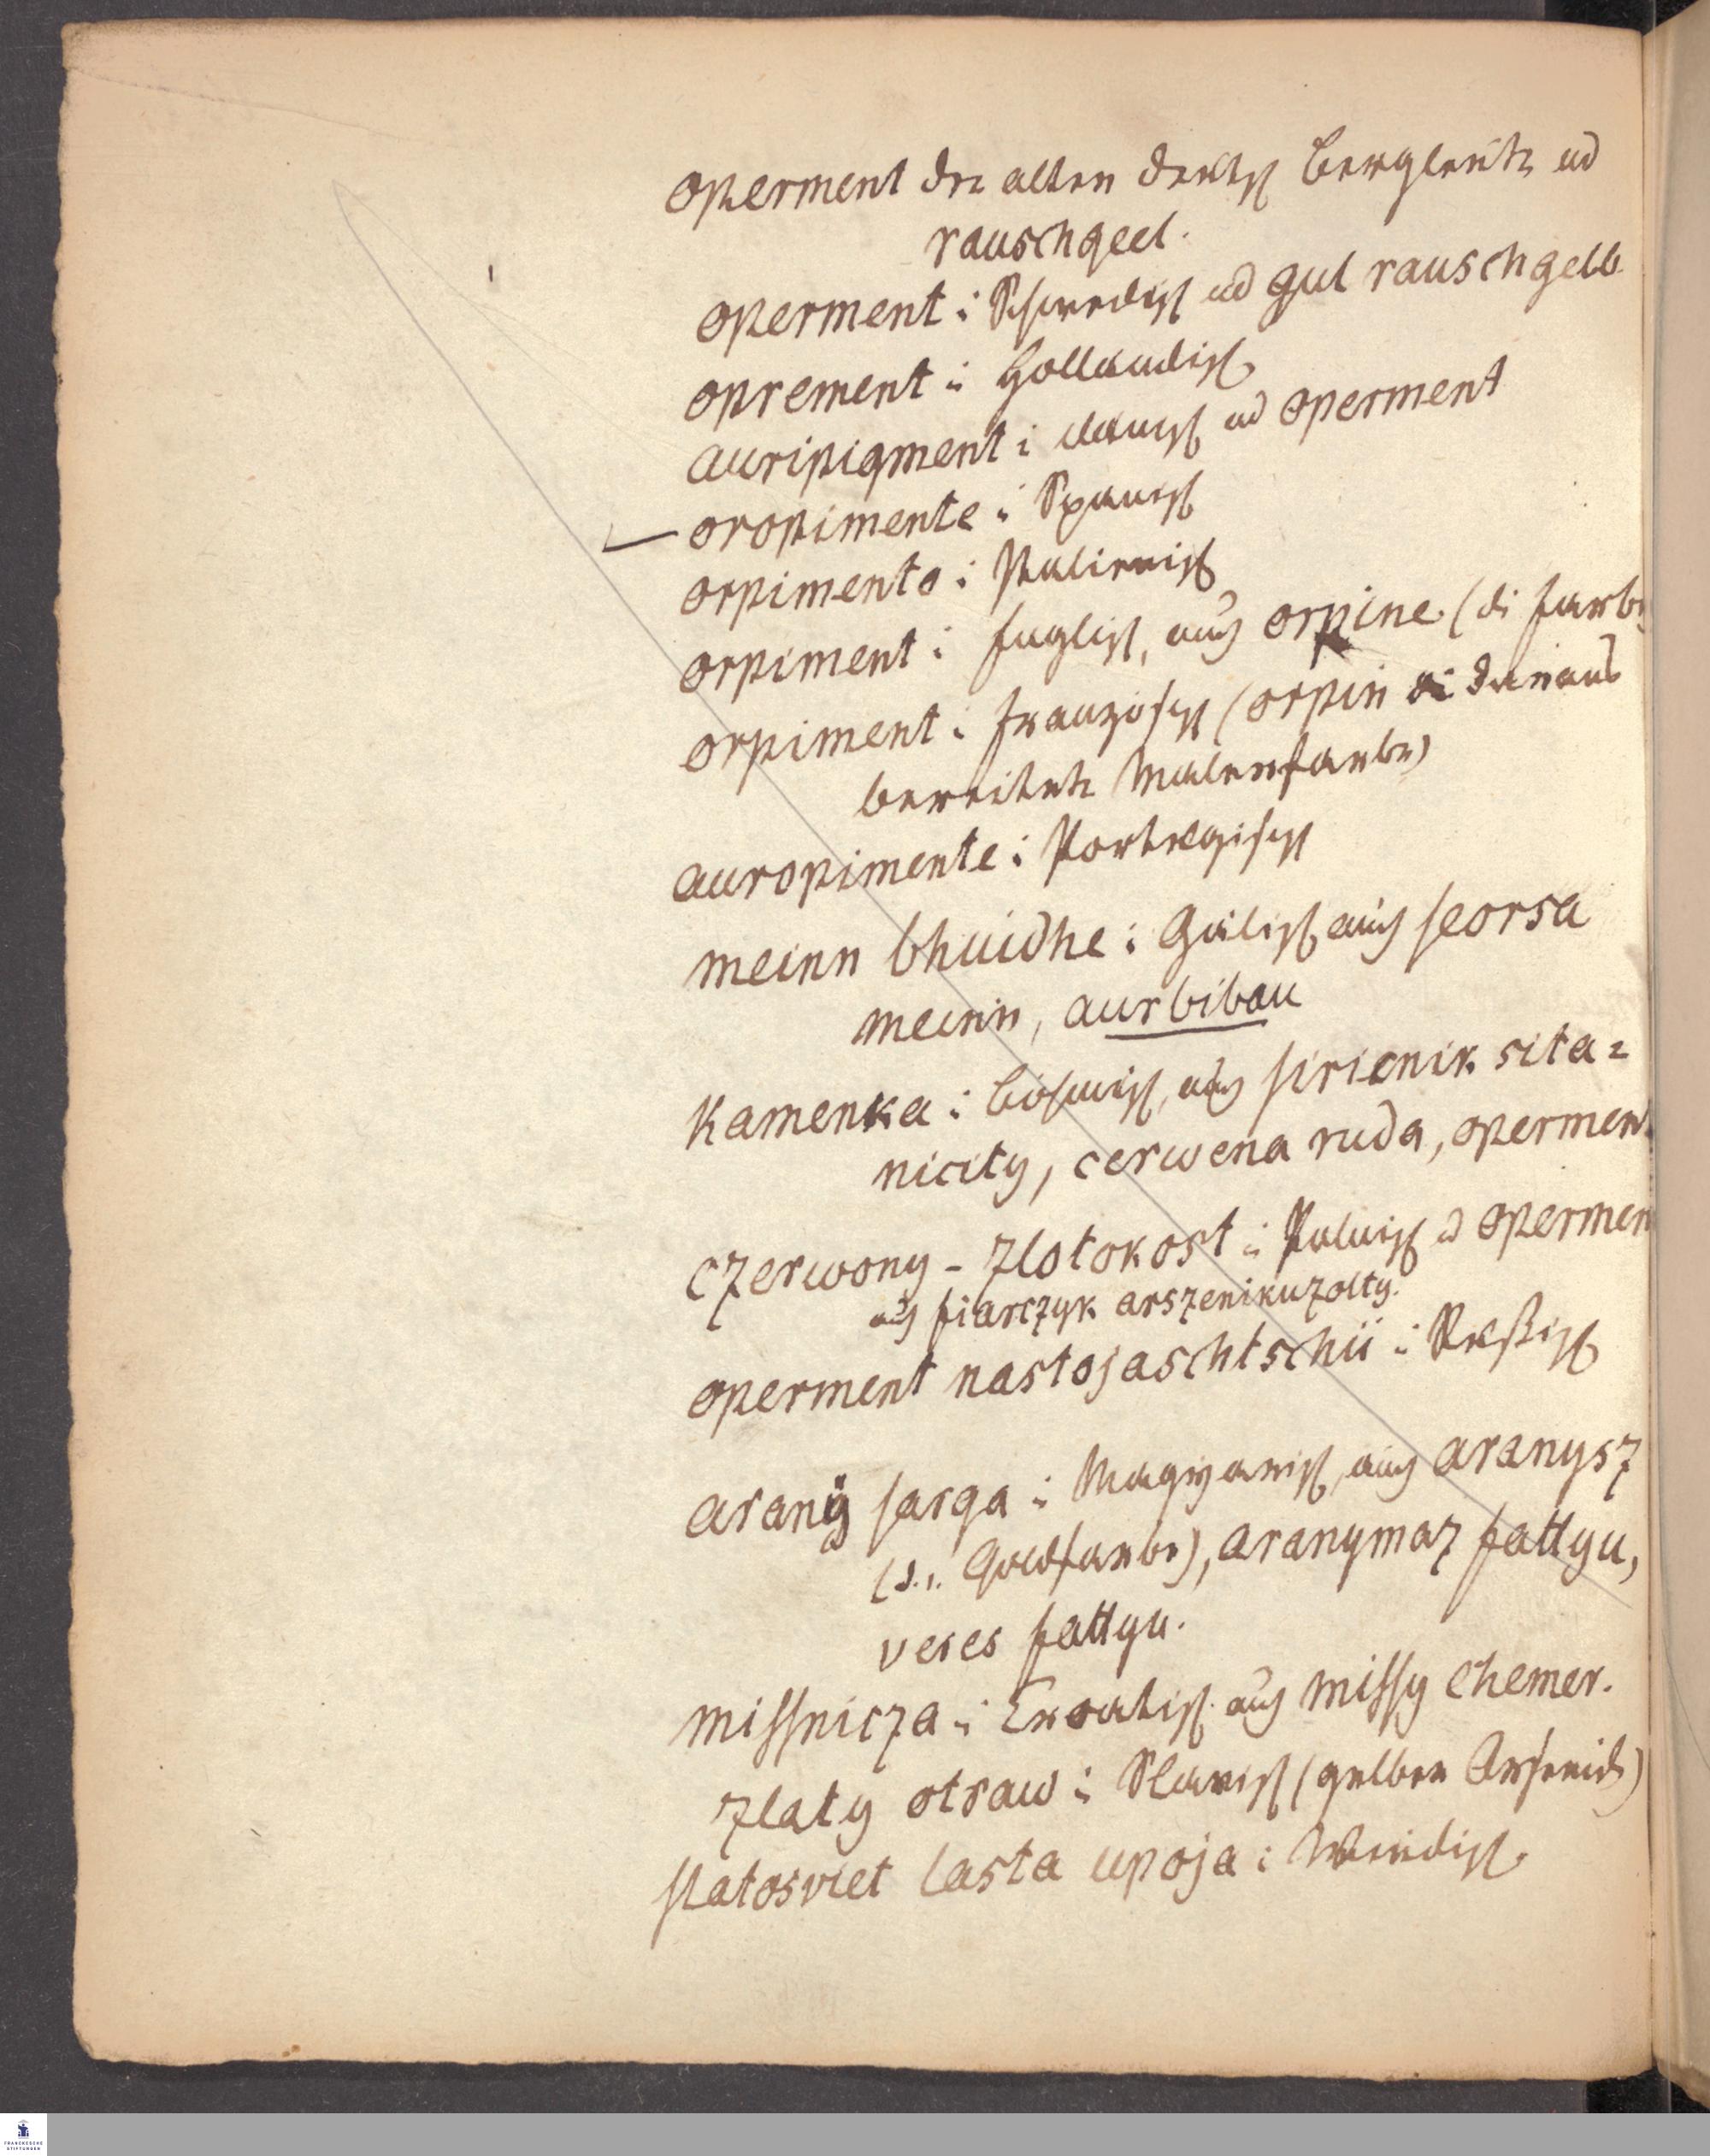 operment der alten deutsch Bergleute ud
rauschgeel.
operment i Schwedisch ud gul rauschgelb
oprement i Holländisch
auripigment i dänisch ud operment
oropimente i Spanisch
orpimento i Italienisch
orpiment i Englisch, auch orpine (di Farbe
orpiment i Französisch (orpin di daraus
bereitete Malerfarbe)
auropimente i Portugisisch
meinn bhuidhe i Gälisch auch seorsa
meinn, aurbibau
Kamenka i Bömisch, auch siricnik sita=
nicity, cerwena ruda, operment
czerwony - zlotokost i Polnisch d operment
auch siarczyk arszenikuzolty.
operment nastojaschtschii i Rußisch
arany sarga i Magyarisch, auch aranysz
(d. i. Goldfarbe), aranymaz fattyu,
veres fattyu.
missnicza i Croatisch auch missy chemer.
zlaty otraw i Slavisch (gelber Arsenik)
slatosviet lasta upoja i Windisch
FRANCKESCHE
STIFTUNGEN